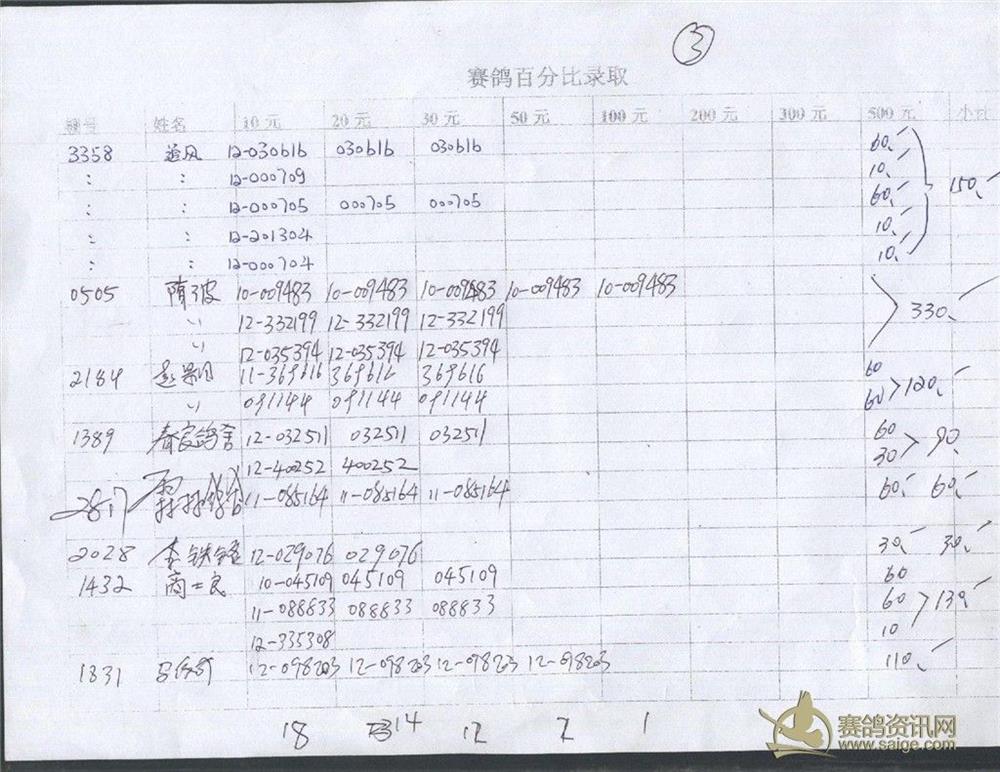 ③
赛鸽百分比录取
棚号 姓名 10元 20元 30元 50元 100元 200元 300元 500元 小计
3358 追风 12-030616 030616 030616 60.
: : 12-000709 10.
: : 12-000705 000705 000705 60. 150.
: : 12-201304 10.
: : 12-000704 10.
0505 隋波 10-009483 10-009483 10-009483 10-009483 10-009483
〃 12-332199 12-332199 12-332199 330.
〃 12-035394 12-035394 12-035394
2184 11-369616 369616 369616 60
〃 091144 091144 091144 60 120.
1389 春家鸽舍 12-032511 032511 032511 60
12-40252 400252 30 90.
2817 11-085164 11-085164 11-085164 60. 60.
2028 李铁 12-029076 029076 30. 30.
1432 商士良 10-045109 045109 045109 60
11-088833 088833 088833 60 130
12-335308 10
1831 12-098203 12-098203 12-098203 12-098203 110.
18 14 12 2 1
赛鸽资讯网
www.saige.com